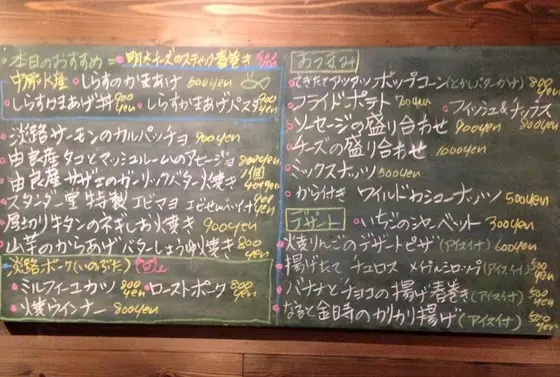 本日のおすすめ 明太チーズのスティック春巻き
水産 しらすのかまあげ 600yen
しらすかまあげ丼 900yen しらすかまあげパスタ 900yen
淡路サーモンのカルパッチョ 900yen
由良産タコとマッシュルームのアヒージョ 800yen
由良産サザエのガーリックバター焼き 1個 400yen
スタンダード特製エビマヨ
厚切り牛タンのネギしお焼き 900yen
山芋のからあげバターしょうゆ焼き 800yen
淡路ポーク(いのぶた)
ミルフィーユカツ 800yen ローストポーク 800yen
火焼ウインナー 800yen
おつまみ
できたてアツアツポップコーン(とかしバターかけ)
フライドポテト 700yen フィッシュ&チップス 800yen
ソーセージの盛り合わせ 900yen
チーズの盛り合わせ 1000yen
ミックスナッツ 500yen
から付き ワイルドカシューナッツ 500yen
デザート いちごのシャーベット 300yen
りんごのデザートピザ(アイス付) 600yen
揚げたて チュロス メイプルシロップ(アイス付) 500yen
バナナとチョコの揚げ春巻き(アイス付) 500yen
なると金時のカリカリ揚げ(アイス付) 500yen